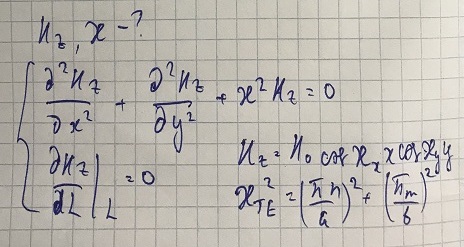 H_z, ϰ - ?
∂²H_z/∂x² + ∂²H_z/∂y² + ϰ²H_z = 0
∂H_z/∂L |_L = 0
H_z = H_0 cos ϰ_x x cos ϰ_y y
ϰ²_TE = (πn/a)² + (πm/b)²